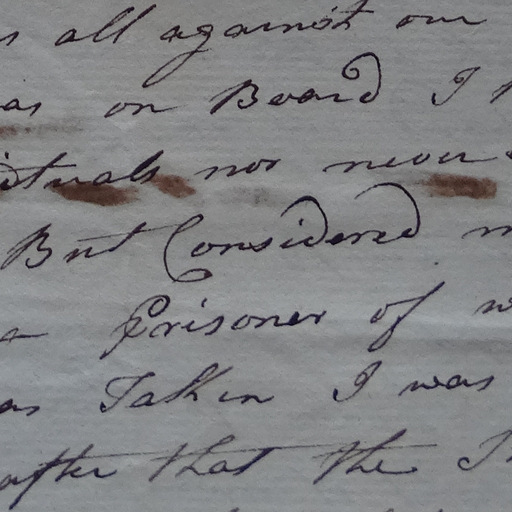 all against our
as on Board I
nor never
But Considered
a Prisoner of
as Taken I was
after that the